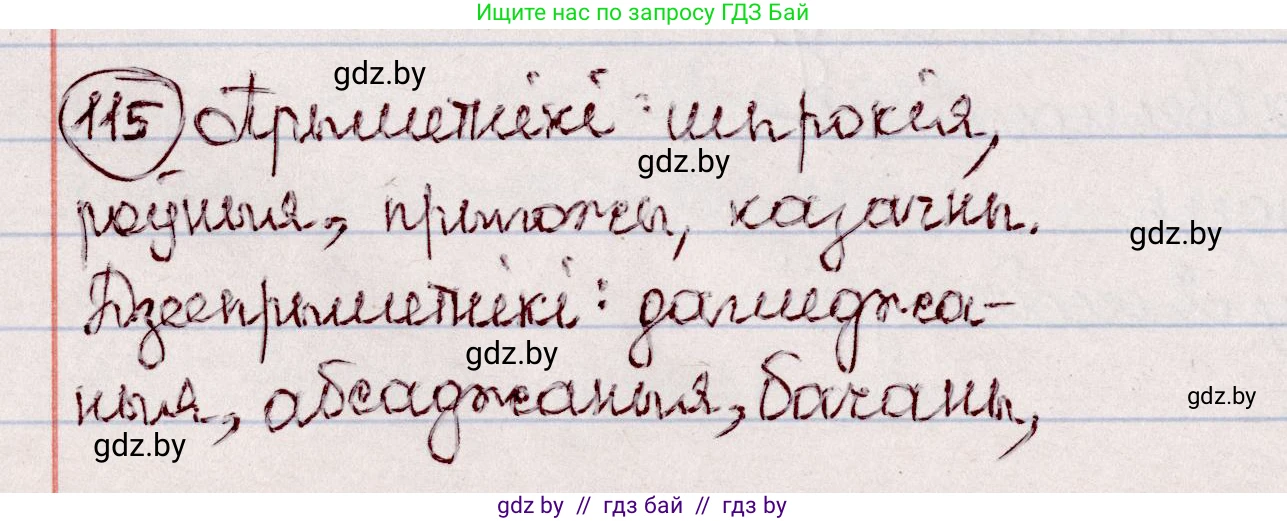 Ищите нас по запросу ГДЗ Бай
gdz.by
115 Прыметнікі: шырокія,
gdz.by
роўныя, прыгожы, казачны.
gdz.by
Дзеепрыметнікі: дагледжа-
gdz.by
ныя, абсаджаныя, бачаны,
gdz.by
gdz.by
gdz by // гдз бай // гдз by